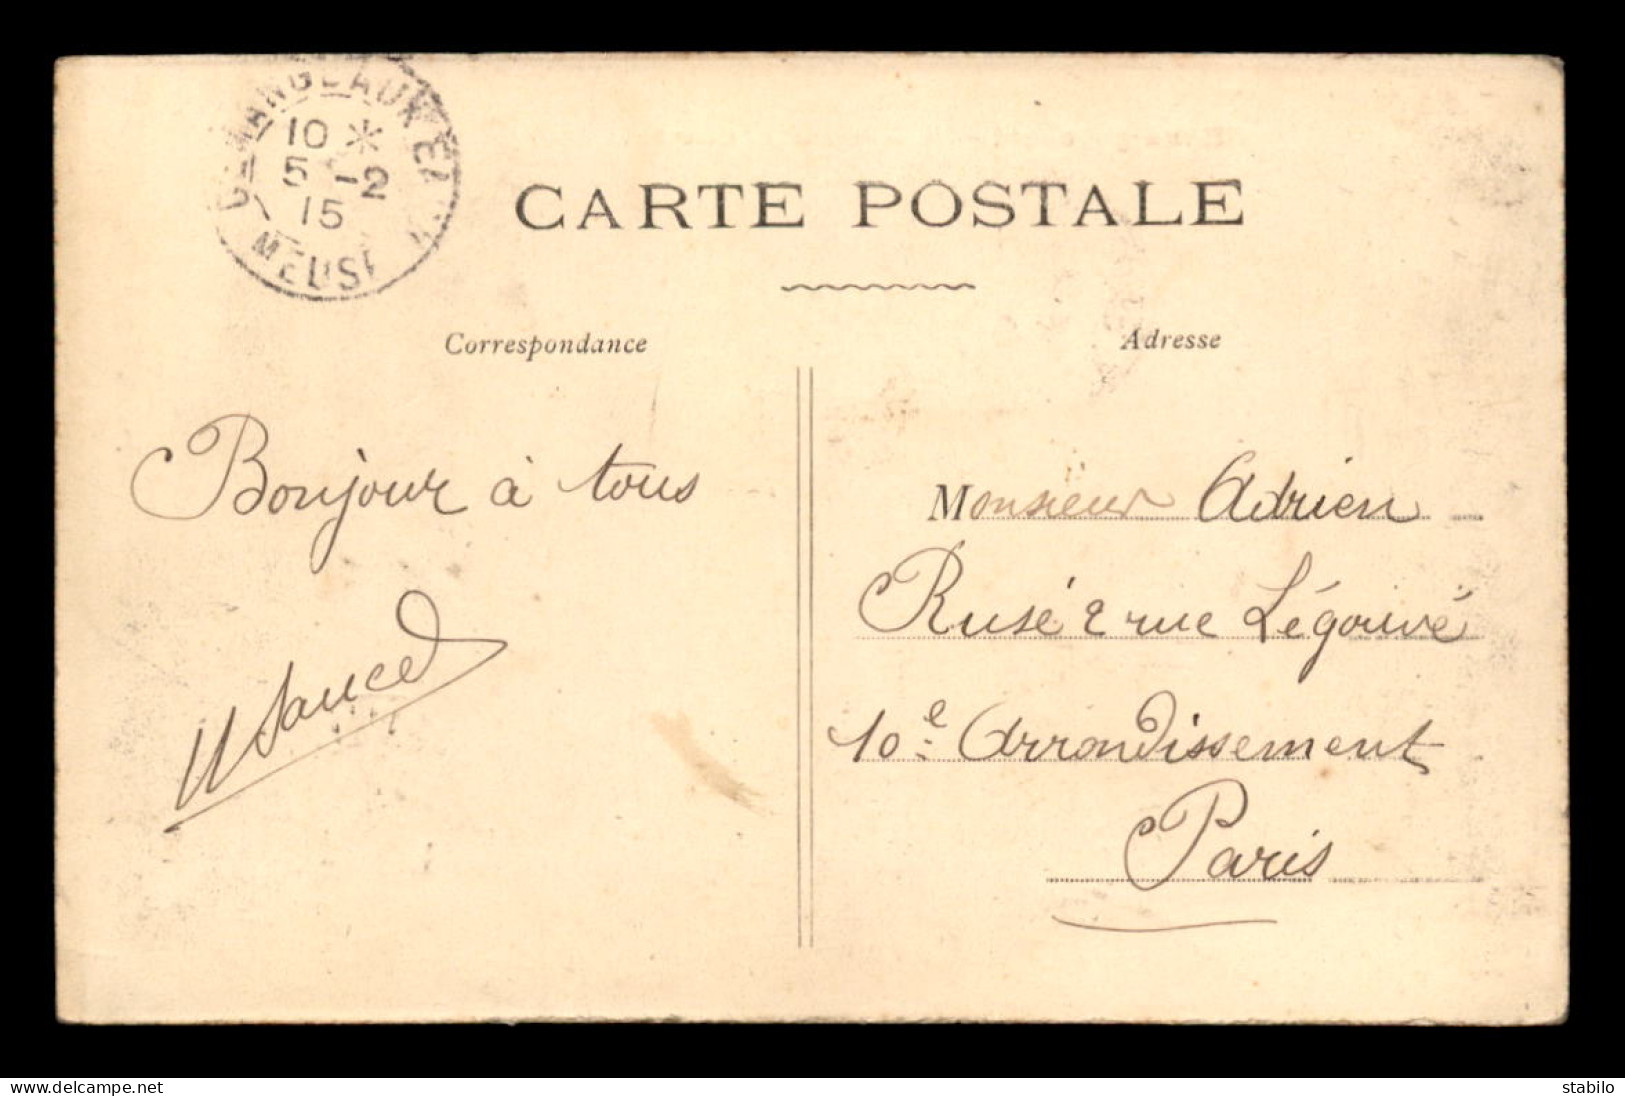 10 *
5 -2
15
MEUSE
CARTE POSTALE
Correspondance
Adresse
Bonjour à tous
Monsieur Adrien
Rusé 2 rue Légouvé
10e Arrondissement
Paris
www.delcampe.net
stabilo